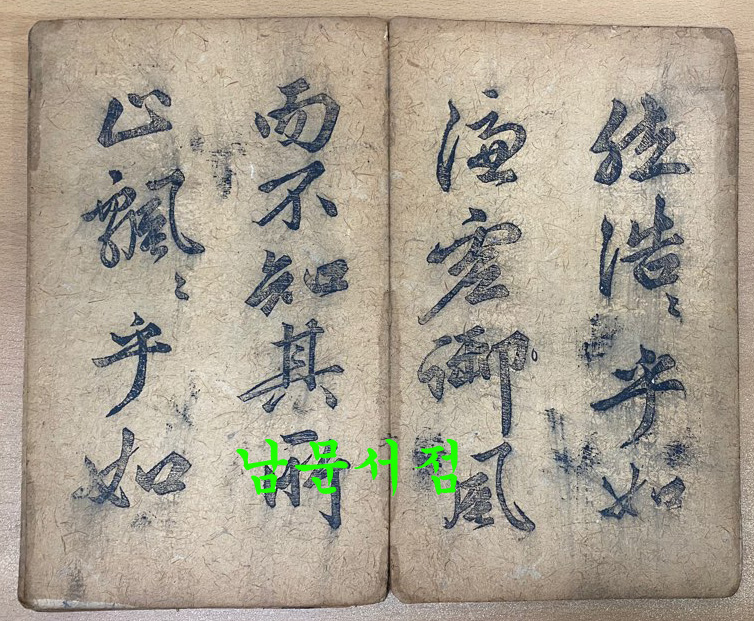 然浩〻乎如
馮虛御風
而不知其所
止飄〻乎如
남문서점